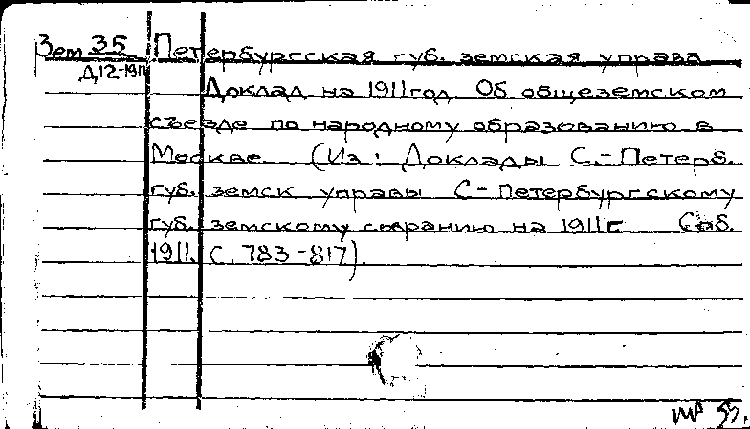 Зем 35 Петербургская губ. земская управа
Д12-1911
Доклад на 1911год Об общеземском
съезде по народному образованию в
Москве (Из: Доклады С.-Петерб.
губ. земск управы С-Петербургскому
губ. земскому собранию на 1911г Спб.
1911. С. 783-817).